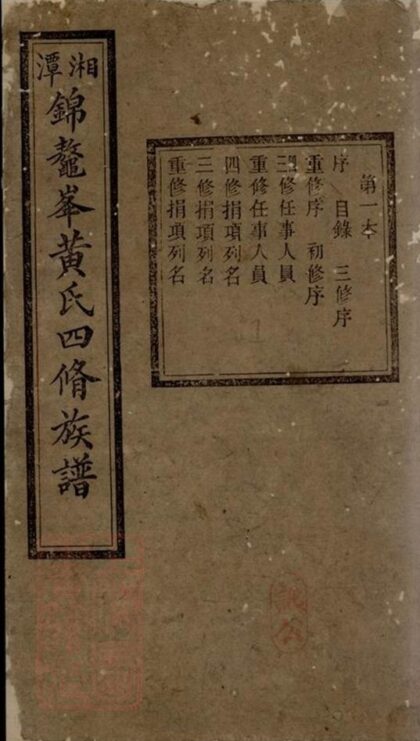 湘潭
錦鼇峯黃氏四脩族譜
第一本
序 目錄 三修序
重修序 初修序
修任事人員
重修任事人員
四修捐項列名
三修捐項列名
重修捐項列名